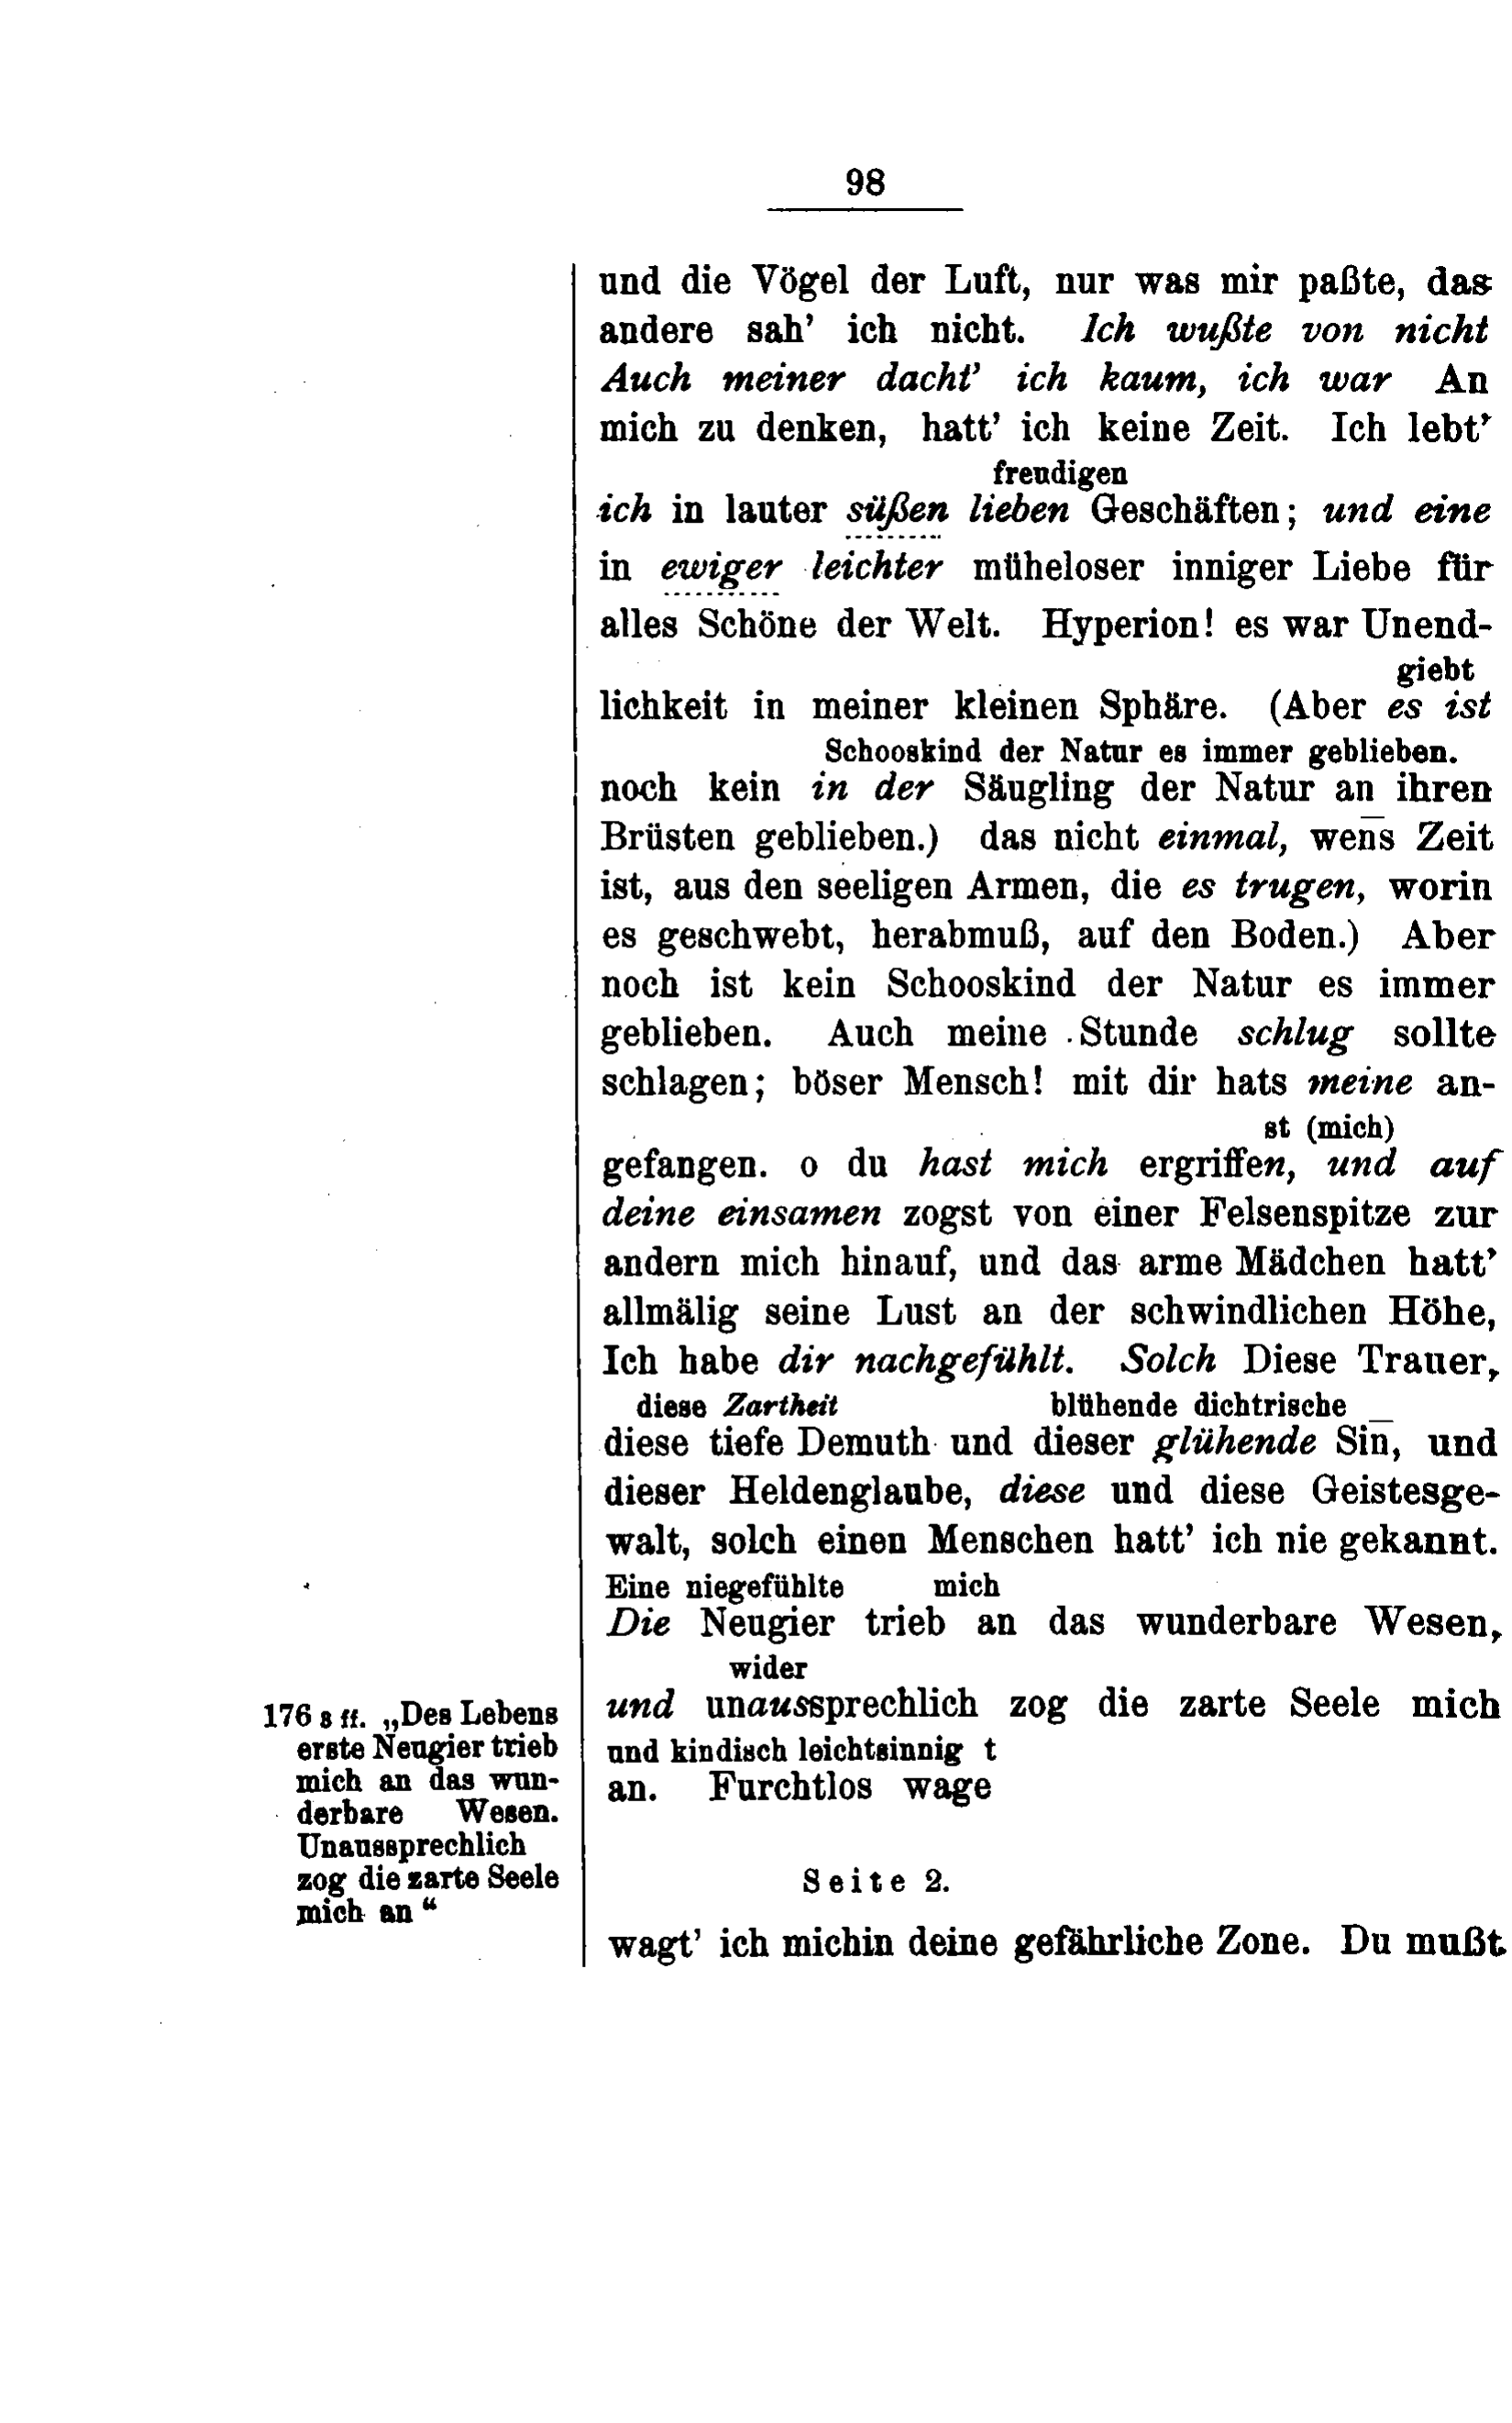 98
und die Vögel der Luft, nur was mir paßte, das
andere sah’ ich nicht. Ich wußte von nicht
Auch meiner dacht’ ich kaum, ich war An
mich zu denken, hatt’ ich keine Zeit. Ich lebt’
freudigen
ich in lauter süßen lieben Geschäften; und eine
in ewiger leichter müheloser inniger Liebe für
alles Schöne der Welt. Hyperion! es war Unend-
giebt
lichkeit in meiner kleinen Sphäre. (Aber es ist
Schooskind der Natur es immer geblieben.
noch kein in der Säugling der Natur an ihren
Brüsten geblieben.) das nicht einmal, wen̄s Zeit
ist, aus den seeligen Armen, die es trugen, worin
es geschwebt, herabmuß, auf den Boden.) Aber
noch ist kein Schooskind der Natur es immer
geblieben. Auch meine Stunde schlug sollte
schlagen; böser Mensch! mit dir hats meine an-
st (mich)
gefangen. o du hast mich ergriffen, und auf
deine einsamen zogst von einer Felsenspitze zur
andern mich hinauf, und das arme Mädchen hatt’
allmälig seine Lust an der schwindlichen Höhe,
Ich habe dir nachgefühlt. Solch Diese Trauer,
diese Zartheit blühende dichtrische
diese tiefe Demuth und dieser glühende Sin̄, und
dieser Heldenglaube, diese und diese Geistesge-
walt, solch einen Menschen hatt’ ich nie gekannt.
Eine niegefühlte mich
Die Neugier trieb an das wunderbare Wesen,
wider
und unaussprechlich zog die zarte Seele mich
und kindisch leichtsinnig t
an. Furchtlos wage
Seite 2.
wagt’ ich michin deine gefährliche Zone. Du mußt
176 8 ff. „Des Lebens
erste Neugier trieb
mich an das wun-
derbare Wesen.
Unaussprechlich
zog die zarte Seele
mich an “